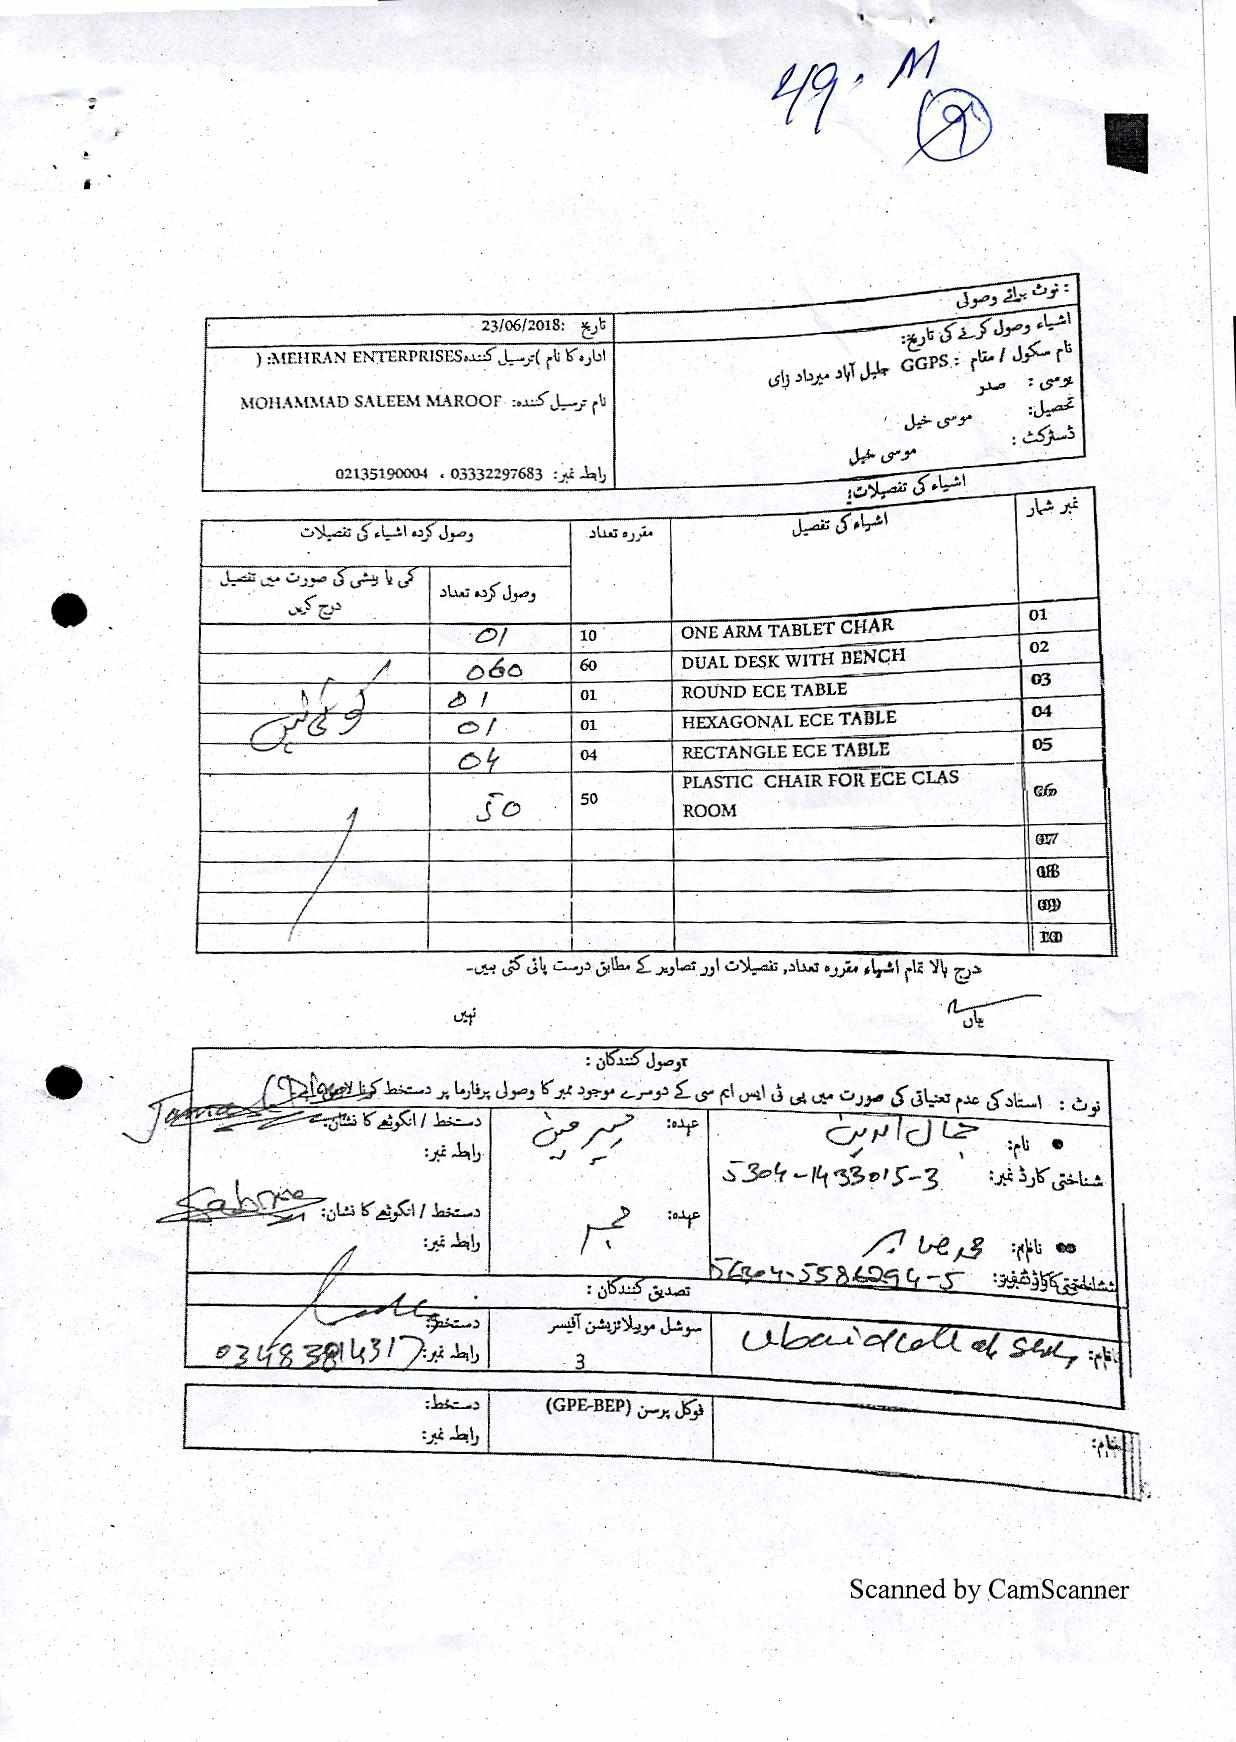 49. M
9
نوٹ برائے وصولی :
اشیاء وصول کرنے کی تاریخ:
نام سکول / مقام : GGPS جلیل آباد میرداد زای
یوسی : صدر
تحصیل: موسی خیل
ڈسٹرکٹ : موسی خیل
تاریخ :23/06/2018
ادارہ کا نام )ترسیل کنندہMEHRAN ENTERPRISES: (
نام ترسیل کنندہ: MOHAMMAD SALEEM MAROOF
رابطہ نمبر: 03332297683 ، 02135190004
اشیاء کی تفصیلات:
نمبر شمار اشیاء کی تفصیل مقررہ تعداد وصول کردہ اشیاء کی تفصیلات
وصول کردہ تعداد کمی یا بیشی کی صورت میں تفصیل درج کریں
01 ONE ARM TABLET CHAR 10 01
02 DUAL DESK WITH BENCH 60 060
03 ROUND ECE TABLE 01 01
04 HEXAGONAL ECE TABLE 01 01
کوئی نہیں
05 RECTANGLE ECE TABLE 04 04
06 PLASTIC CHAIR FOR ECE CLAS ROOM 50 50
07
08
09
10
درج بالا تمام اشیاء مقررہ تعداد, تفصیلات اور تصاویر کے مطابق درست پائی گئی ہیں۔
ہاں نہیں
وصول کنندگان :
نوٹ : استاد کی عدم تعیناتی کی صورت میں پی ٹی ایس ایم سی کے دوسرے موجود ممبر کا وصولی پرفارما پر دستخط کرنا لازمی
نام: جمال الدین عہدہ: چیرمین دستخط / انگوٹھے کا نشان:
شناختی کارڈ نمبر: 5304-1433015-3 رابطہ نمبر:
نام: عہدہ: ممبر دستخط / انگوٹھے کا نشان: Sabrina
56304-5586294-5 رابطہ نمبر:
تصدیق کنندگان :
نام: Ubaidullah سوشل موبیلائزیشن آفیسر دستخط:
3 رابطہ نمبر: 03483814317
نام: فوکل پرسن (GPE-BEP) دستخط:
رابطہ نمبر:
Scanned by CamScanner